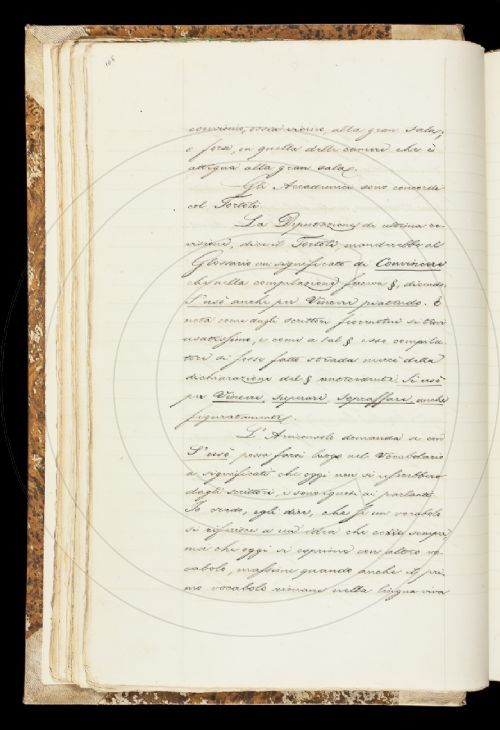 convivio, ossia vicino, alla gran sala,
o forse, in quella delle camere che è
attigua alla gran sala.
Gli Accademici sono concordi
col Tortoli.
La Deputazione di ultima re-
visione, dice il Tortoli, manderebbe al
Glossario un significato di Convincere
che nella compilazione faceva §, dicendo
S'usò anche per Vincere piatendo. E
nota come dagli scrittori fiorentini si trovi
usatissimo, e come a tal § esse compila-
tore si fosse fatto strada mercè della
dichiarazione del § antecedente. Si usò
per Vincere, superare, sopraffare, anche
figuratamente.
L'Arciconsolo domanda se con
S'usò, possa farsi luogo nel Vocabolario
a significati che oggi non si userebbero
dagli scrittori, e sono ignoti ai parlanti.
Io credo, egli dice, che se un vocabolo
si riferisce a un' idea che esiste sempre,
ma che oggi si esprime con altro vo-
cabolo, massime quando anche il pri-
mo vocabolo rimane nella lingua viva